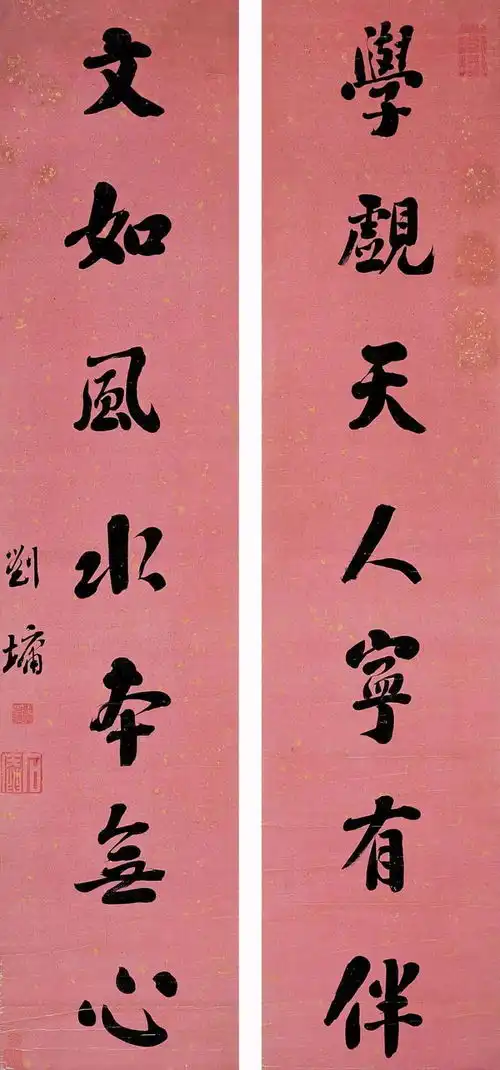 學觑天人寧有伴
文如風水本無心
劉墉